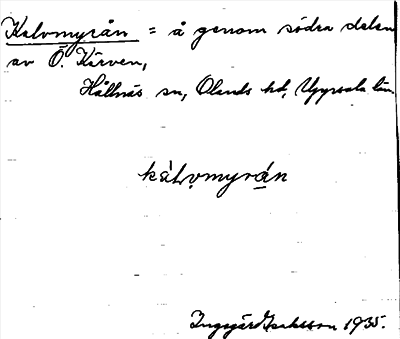 Kalvmyrån = å genom södra delen
av Ö. Kärven,
Hållnäs sn, Olands hd, Uppsala län.
kàLvmyrán
Ingegärd Isaksson 1935.